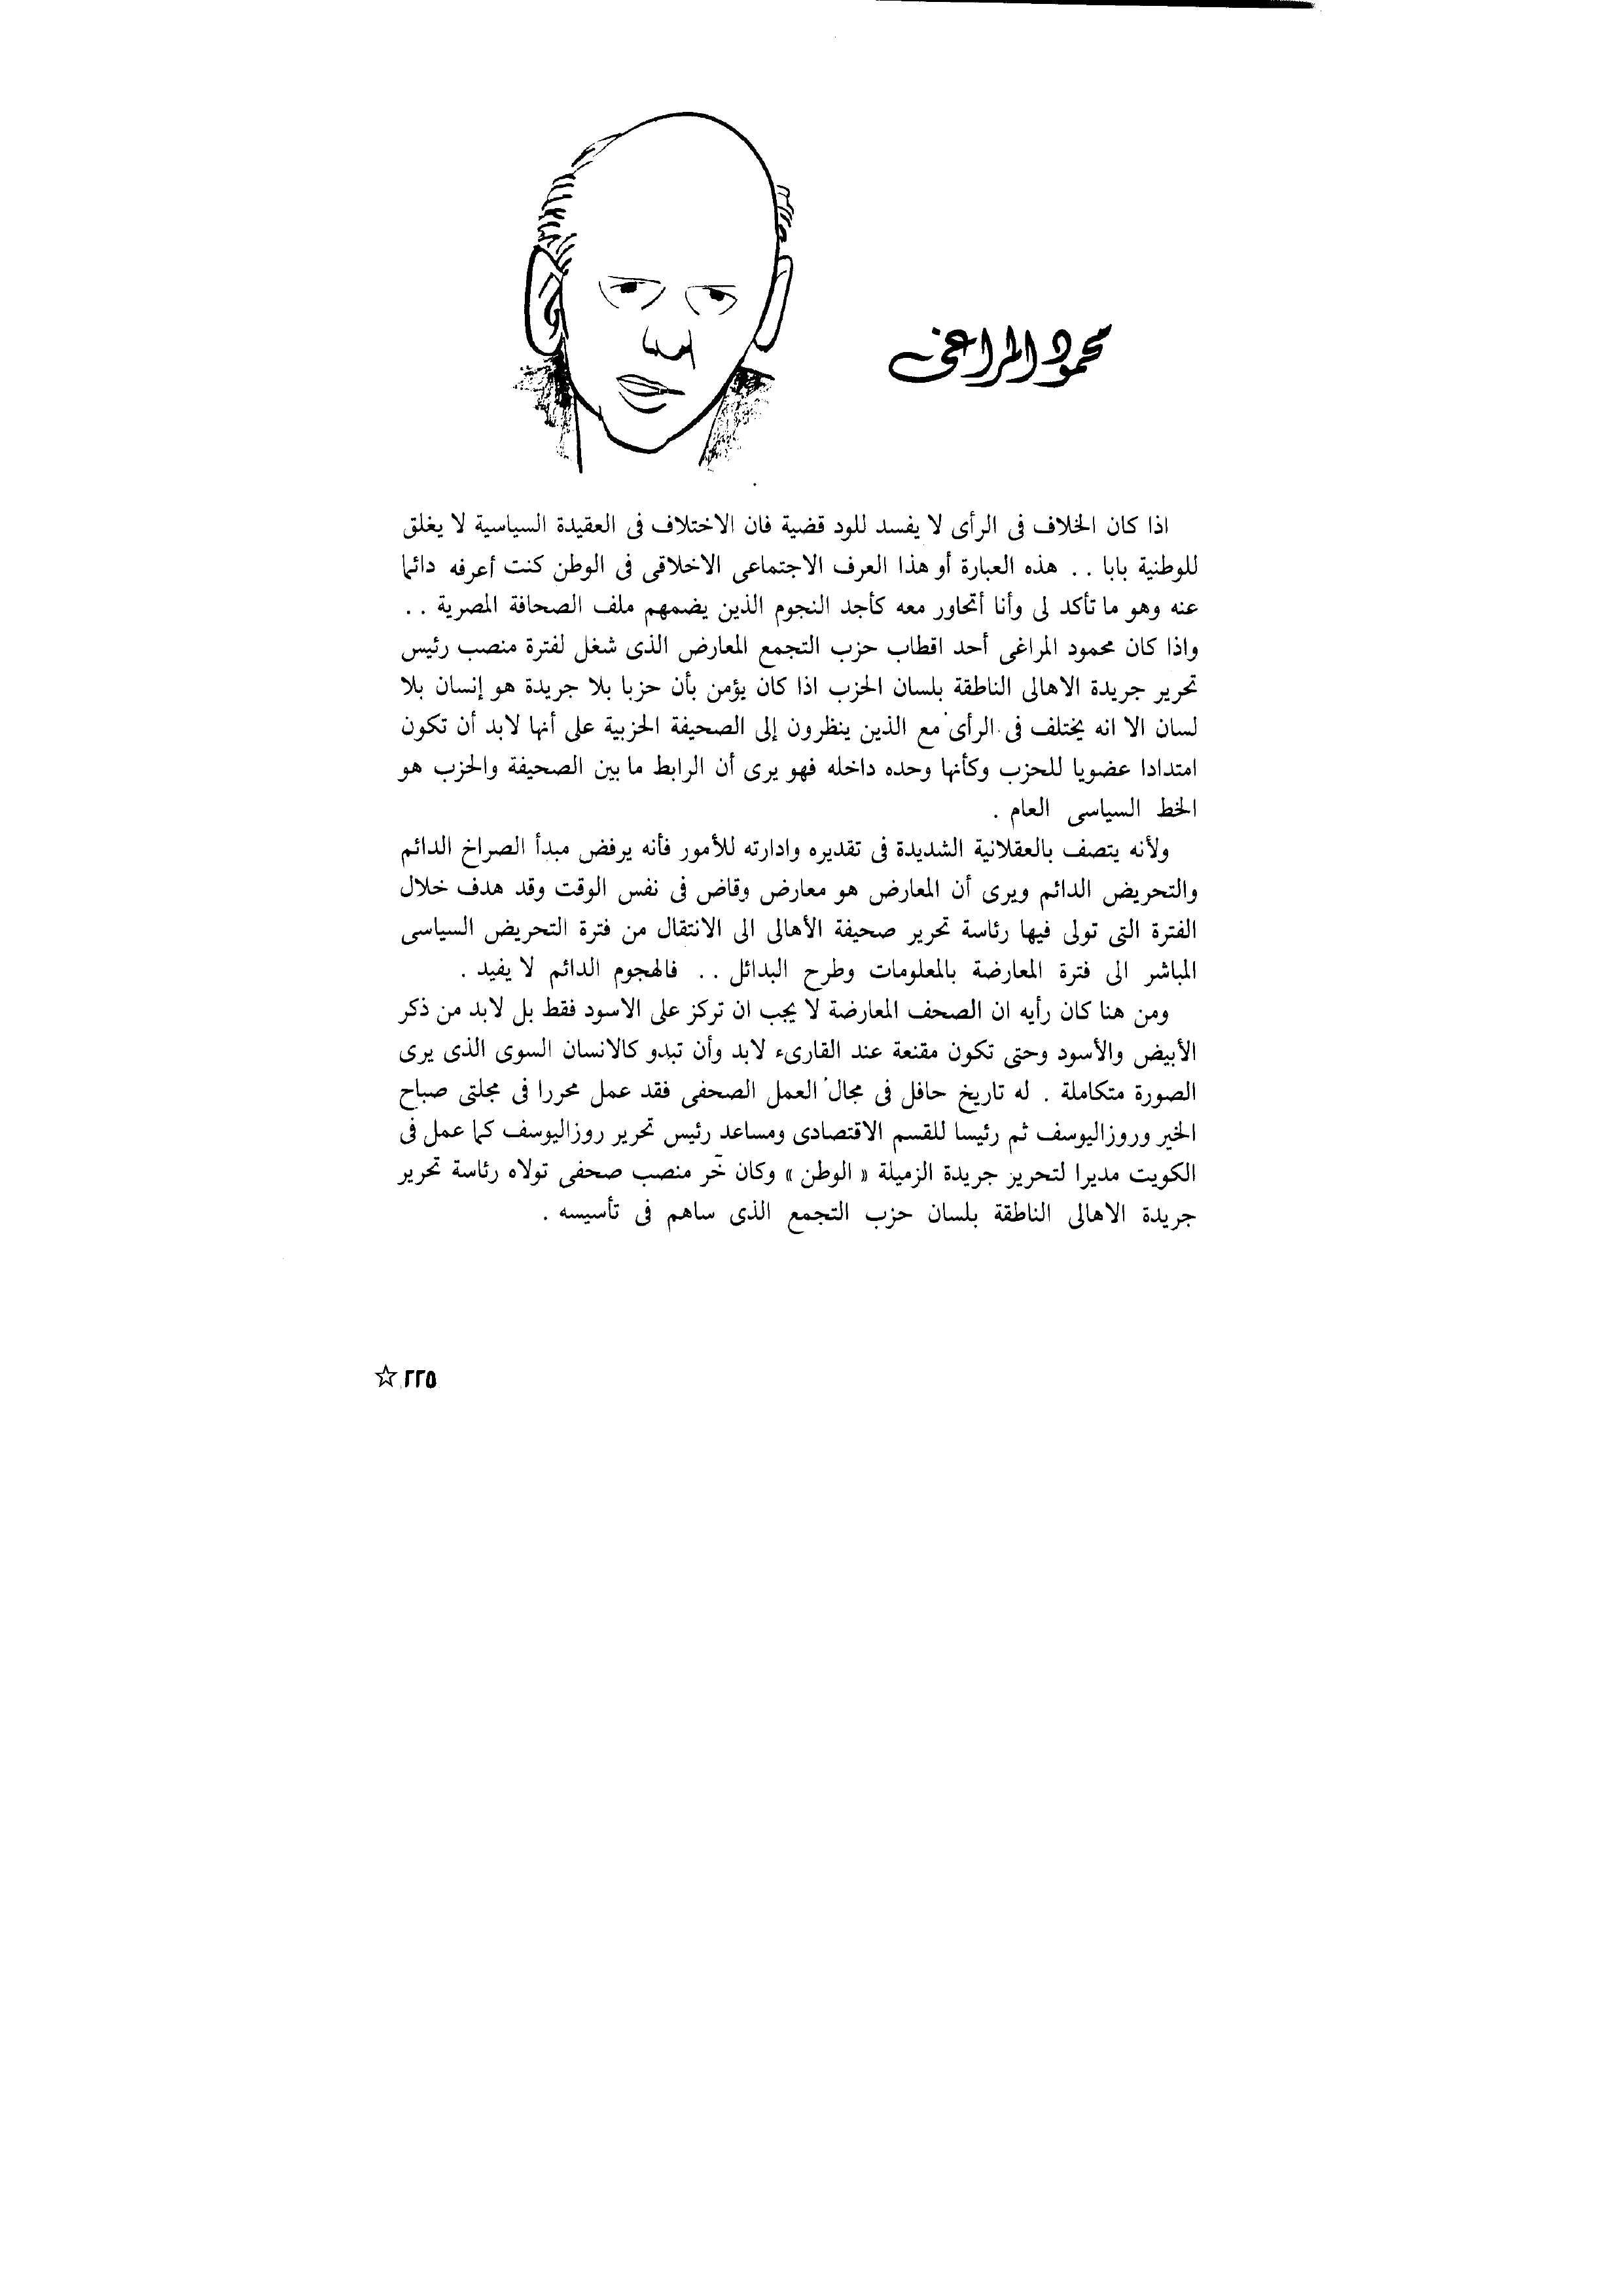 محمود المراغى
اذا كان الخلاف فى الرأى لا يفسد للود قضية فان الاختلاف فى العقيدة السياسية لا يغلق
للوطنية بابا . . هذه العبارة أو هذا العرف الاجتماعى الاخلاقى فى الوطن كنت أعرفه دائما
عنه وهو ما تأكد لى وأنا أتحاور معه كأجد النجوم الذين يضمهم ملف الصحافة المصرية . .
واذا كان محمود المراغى أحد اقطاب حزب التجمع المعارض الذى شغل لفترة منصب رئيس
تحرير جريدة الاهالى الناطقة بلسان الحزب اذا كان يؤمن بأن حزبا بلا جريدة هو إنسان بلا
لسان الا انه يختلف فى الرأى مع الذين ينظرون إلى الصحيفة الحزبية على أنها لابد أن تكون
امتدادا عضويا للحزب وكأنها وحده داخله فهو يرى أن الرابط ما بين الصحيفة والحزب هو
الخط السياسى العام .
ولأنه يتصف بالعقلانية الشديدة فى تقديره وادارته للأمور فأنه يرفض مبدأ الصراخ الدائم
والتحريض الدائم ويرى أن المعارض هو معارض وقاض فى نفس الوقت وقد هدف خلال
الفترة التى تولى فيها رئاسة تحرير صحيفة الأهالى الى الانتقال من فترة التحريض السياسى
المباشر الى فترة المعارضة بالمعلومات وطرح البدائل . . فالهجوم الدائم لا يفيد .
ومن هنا كان رأيه ان الصحف المعارضة لا يجب ان تركز على الاسود فقط بل لابد من ذكر
الأبيض والأسود وحتى تكون مقنعة عند القارىء لابد وأن تبدو كالانسان السوى الذى يرى
الصورة متكاملة . له تاريخ حافل فى مجال العمل الصحفى فقد عمل محررا فى مجلتى صباح
الخير وروزاليوسف ثم رئيسا للقسم الاقتصادى ومساعد رئيس تحرير روزاليوسف كما عمل فى
الكويت مديرا لتحرير جريدة الزميلة « الوطن » وكان خّر منصب صحفى تولاه رئاسة تحرير
جريدة الاهالى الناطقة بلسان حزب التجمع الذى ساهم فى تأسيسه .
٢٢٥ ☆